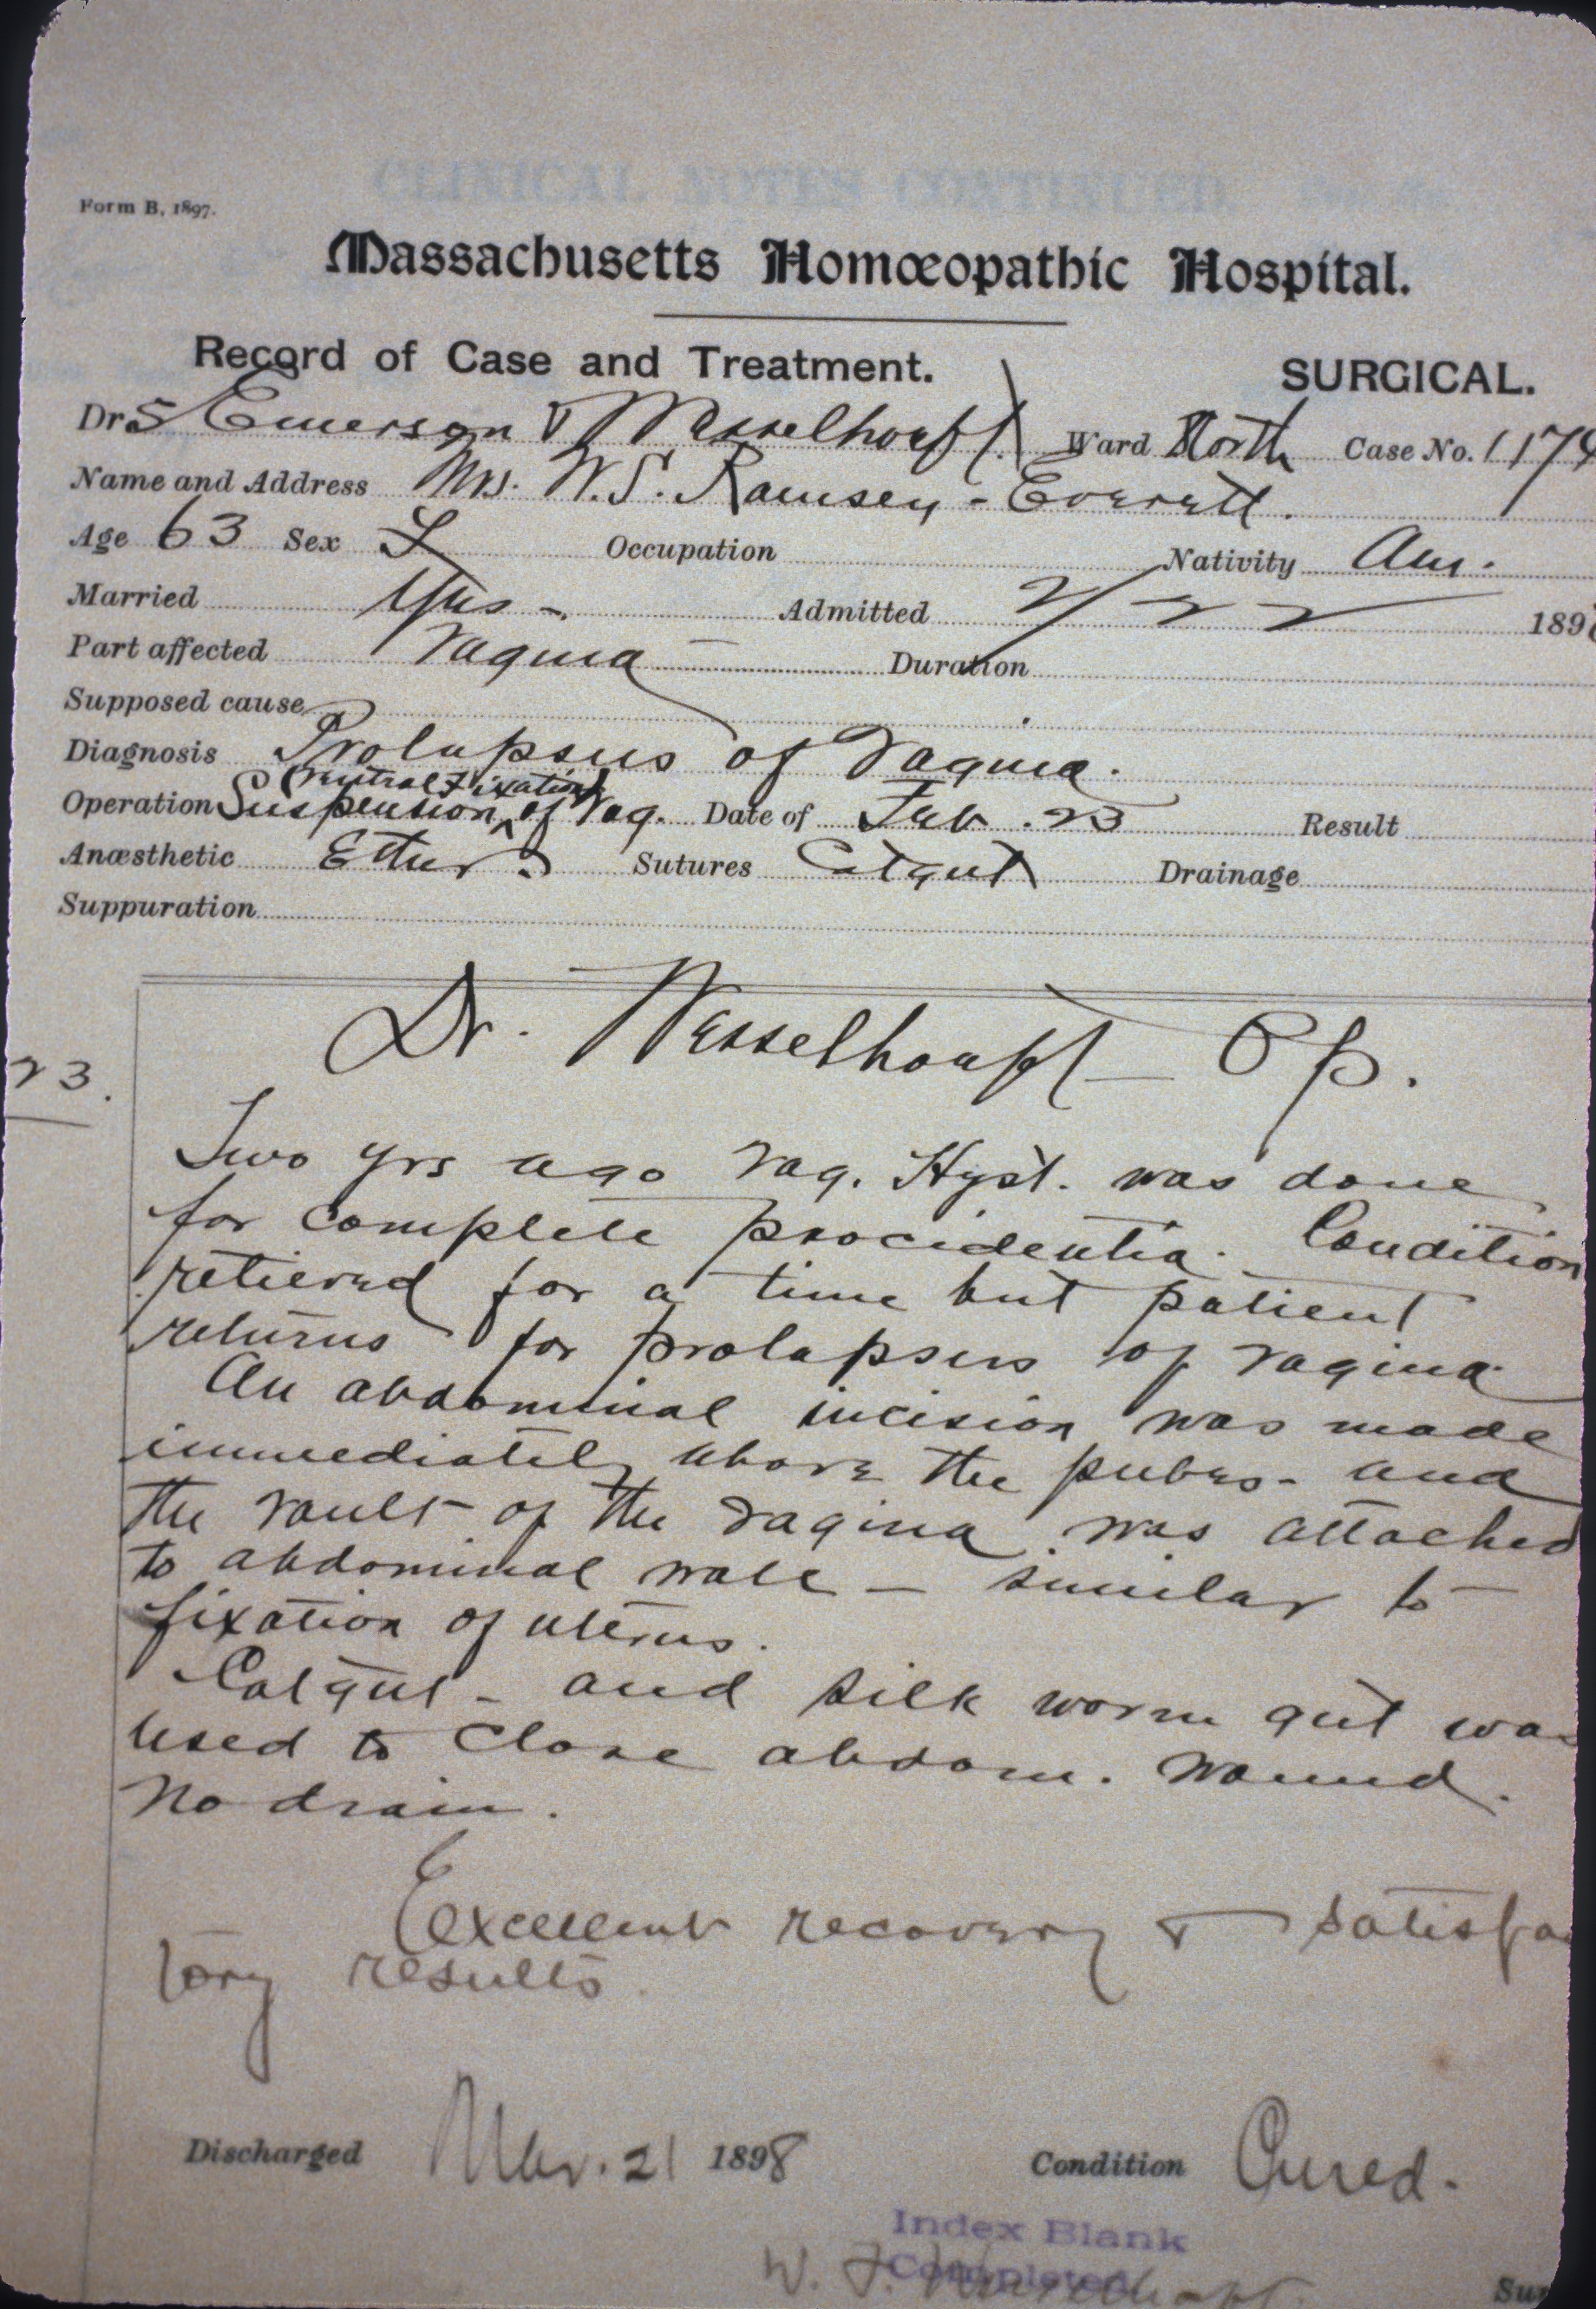 CLINICAL NOTES CONTINUED
Form B, 1897.
Massachusetts Homœopathic Hospital.
Record of Case and Treatment. SURGICAL.
Drs Emerson & Wesselhoeft Ward North Case No. 1174
Name and Address Mrs. W.S. Ramsey - Everett.
Age 63 Sex F Occupation Nativity Am.
Married Yes - Admitted 2/22 189
Part affected Vagina - Duration
Supposed cause
Diagnosis Prolapsus of Vagina.
(Ventral Fixation)
Operation Suspension of Vag. Date of Feb. 23 Result
Anæsthetic Ether Sutures Catgut Drainage
Suppuration
Dr. Wesselhoeft - Op.
23.
Two yrs ago Vag. Hyst. was done
for complete procidentia. Condition
relieved for a time but patient
returns for prolapsus of vagina.
An abdominal incision was made
immediately above the pubes - and
the vault of the vagina was attached
to abdominal wall - similar to
fixation of uterus.
Catgut - and silk worm gut was
used to close abdom. wound.
No drain.
Excellent recovery & satisfac
tory results
Discharged Mar. 21 1898 Condition Cured.
Index Blank
Completed
W. F. Wesselhoeft
Sur